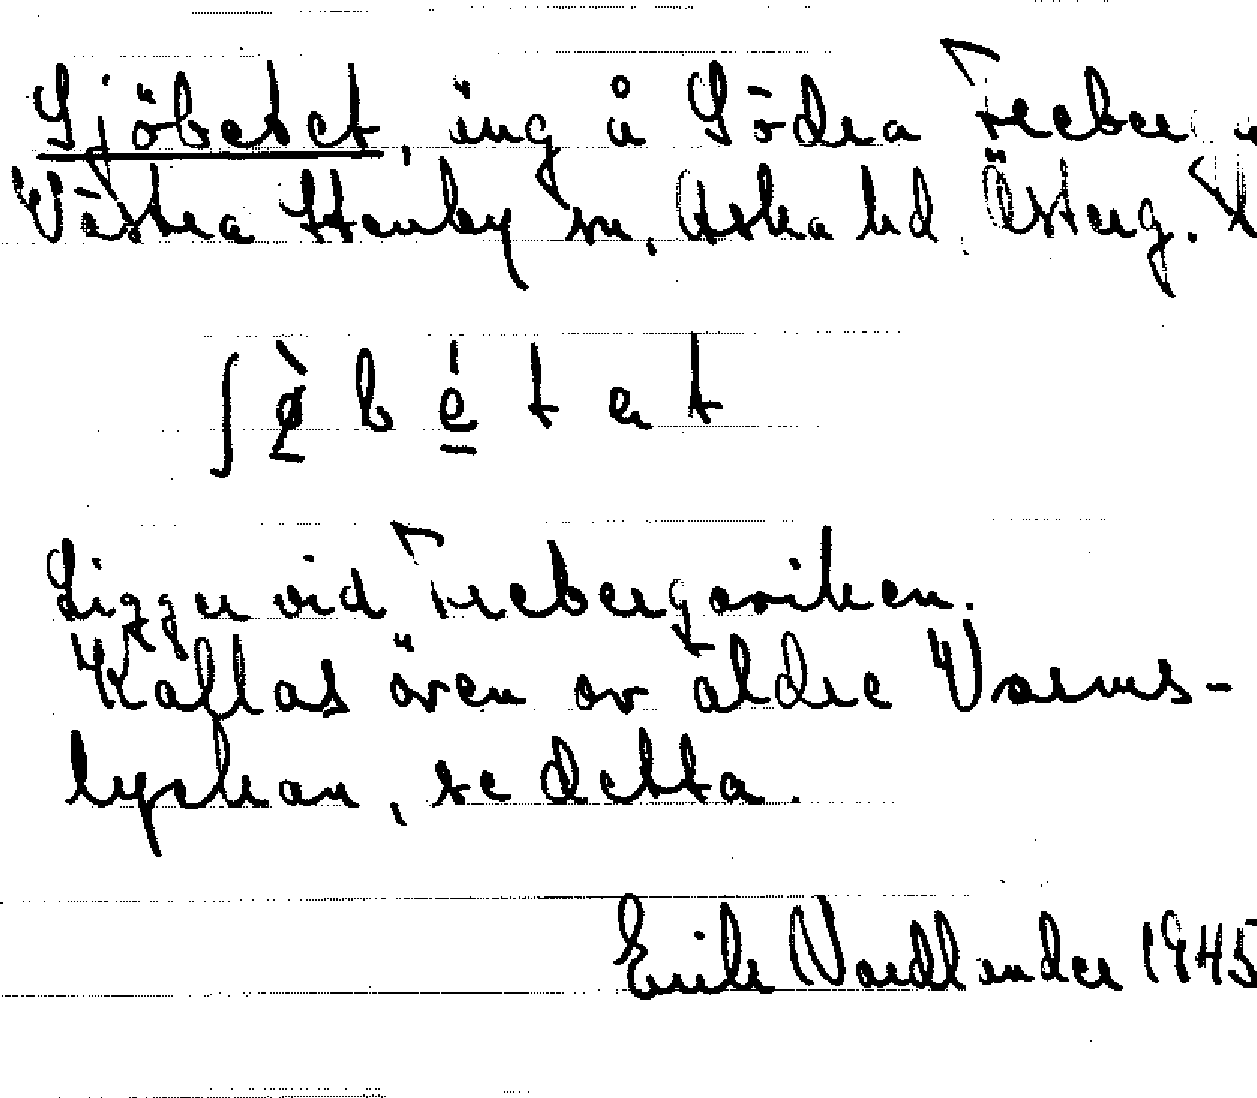 Sjöbetet, äng å Södra Freber
Västra Stenby sn, Aska hd, Österg.
ʃø̀bétet
Ligger vid Frebergaviken.
Kallas även av äldre
lyckan, se detta.
Erik Nordlander 1945